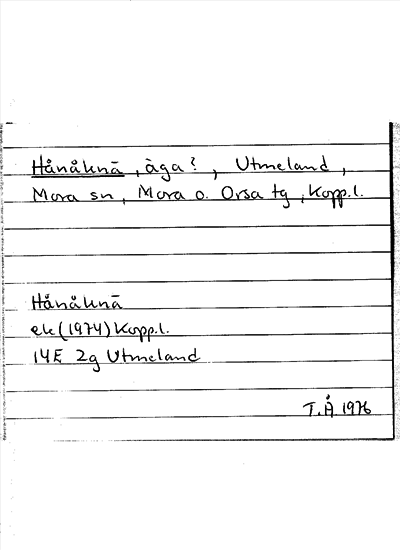 Hånåknä, äga?, Utmeland,
Mora sn, Mora o. Orsa tg, Kopp.l.
Hånåknä
ek (1974) Kopp.l.
14E 2g Utmeland
T.Å 1976